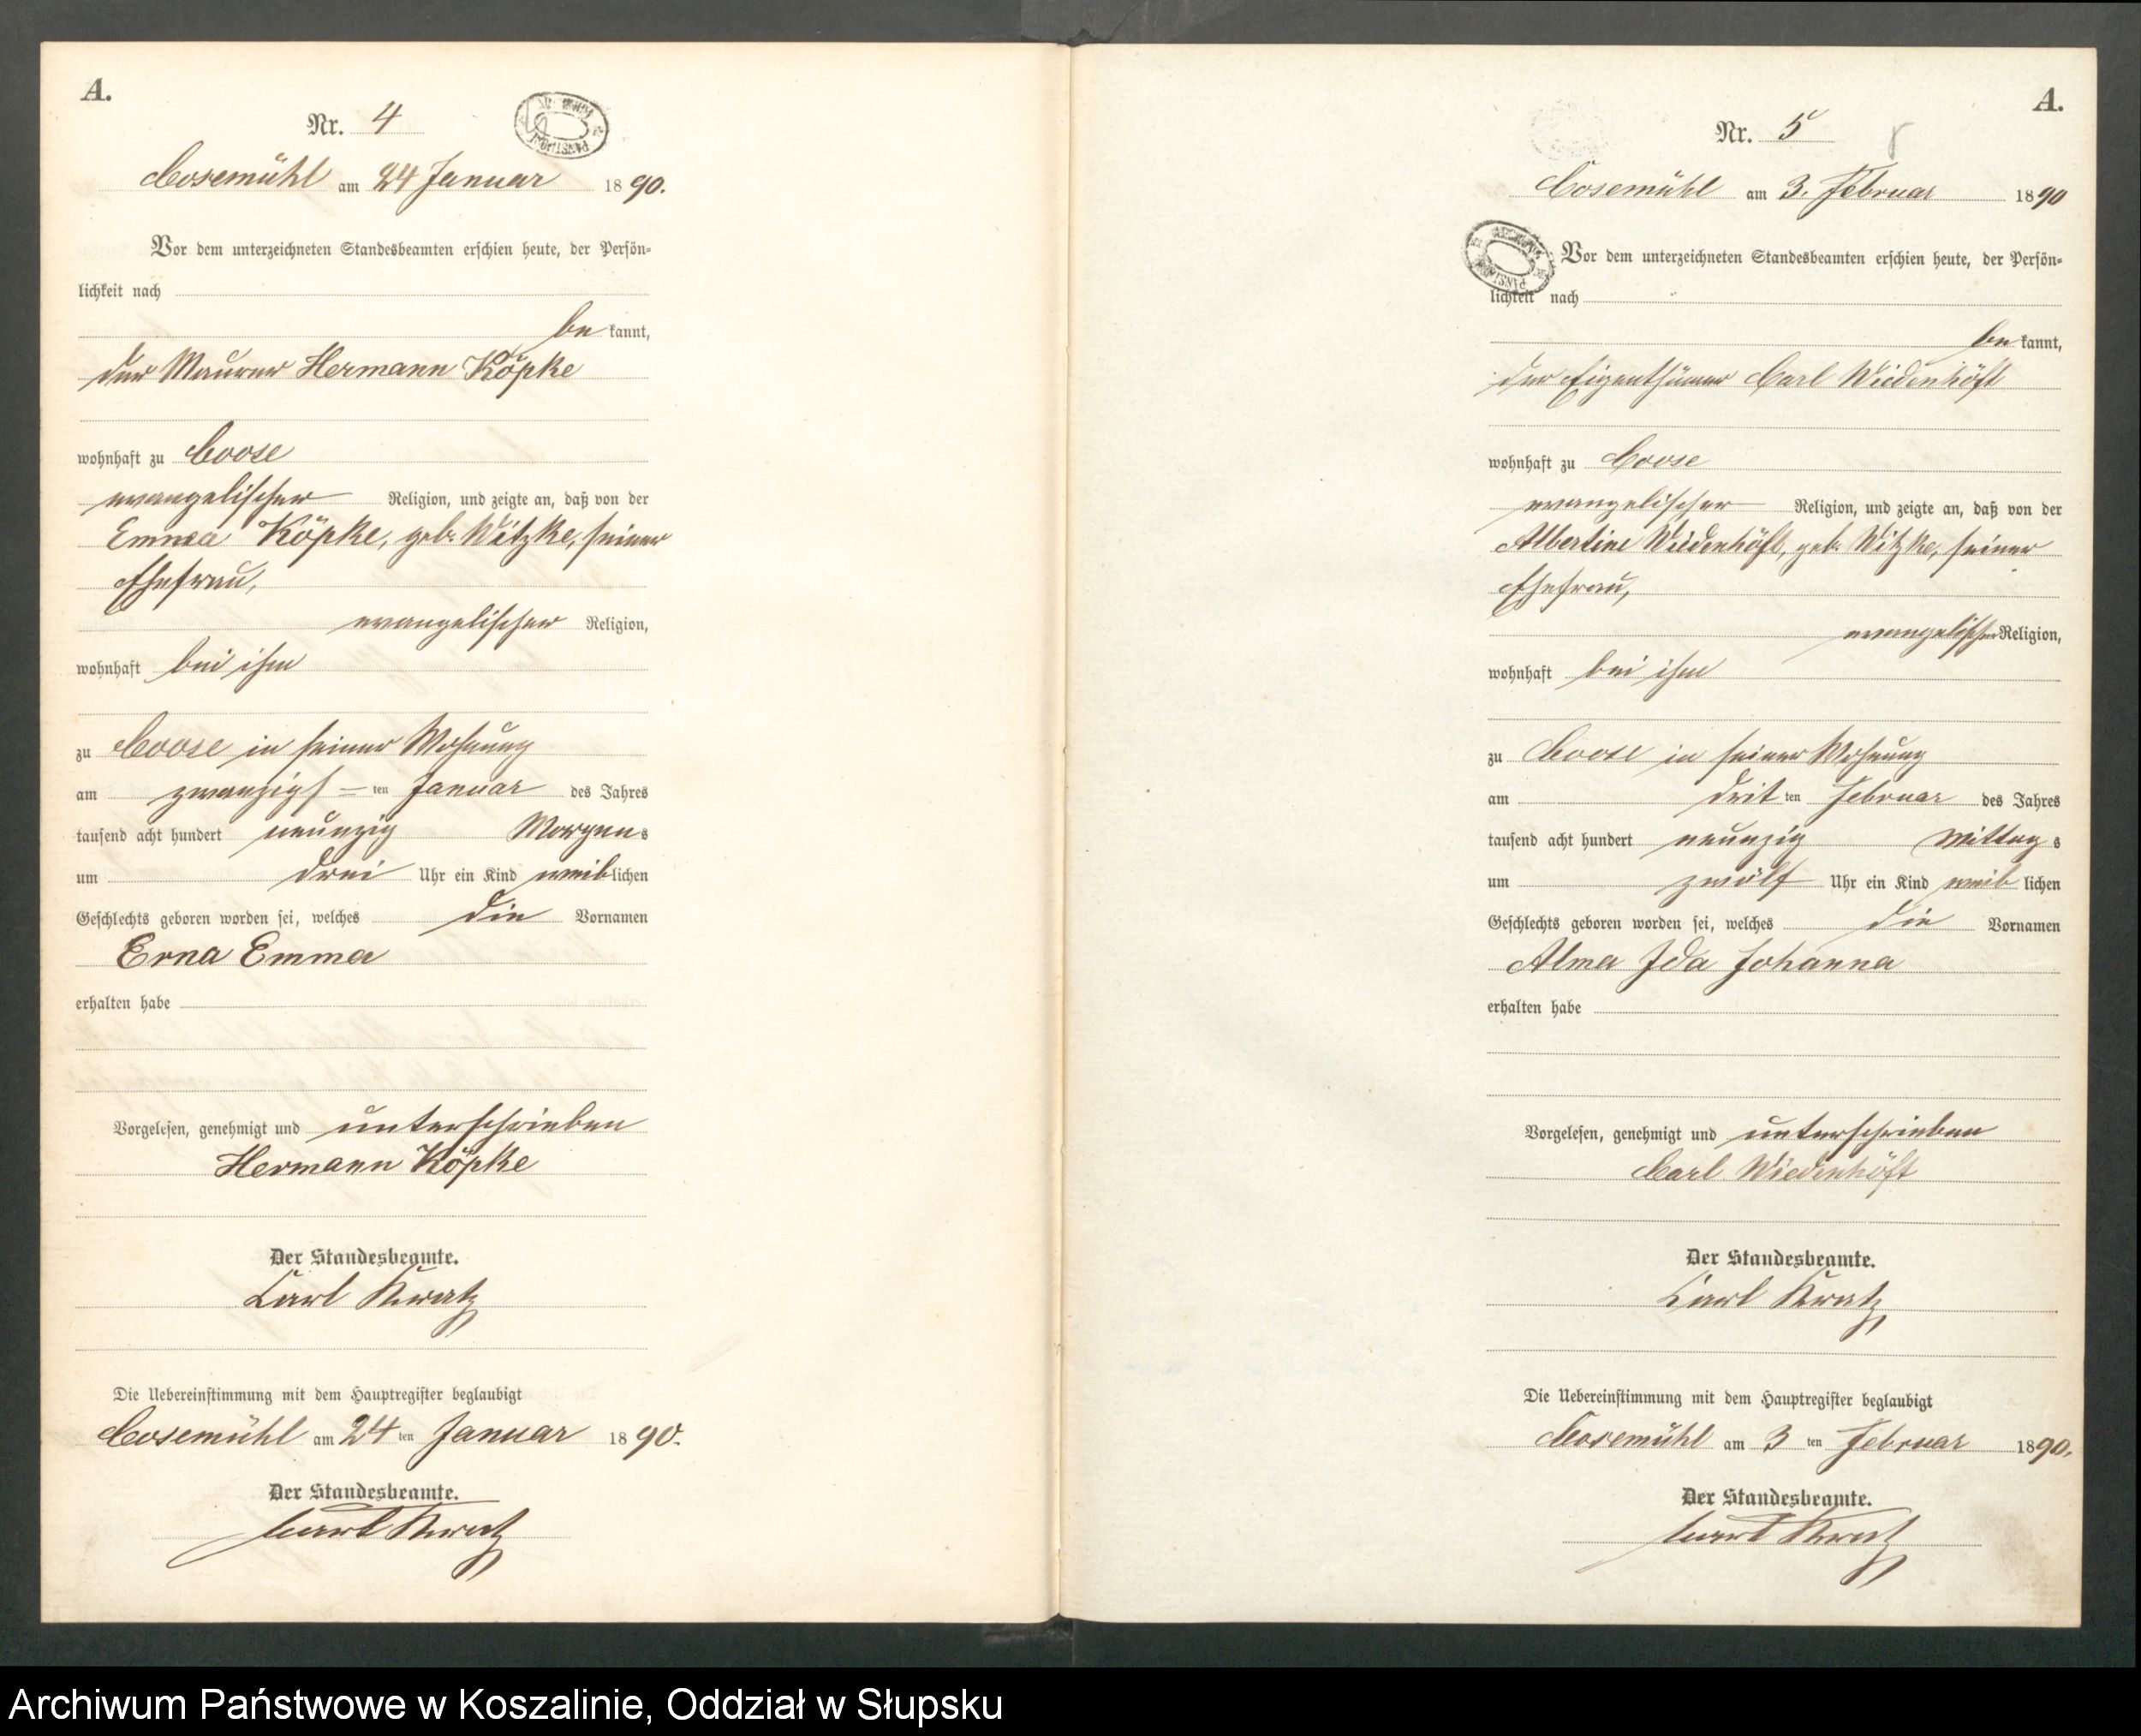 A.
Nr. 4
Cosemühl am 24 Januar 1890.
Vor dem unterzeichneten Standesbeamten erschien heute, der Persön-
lichkeit nach
bekannt,
der Maurer Hermann Köpke
wohnhaft zu Coose
evangelischer Religion, und zeigte an, daß von der
Emma Köpke, geb. Witzke, seiner
Ehefrau,
evangelischer Religion,
wohnhaft bei ihm
zu Coose in seiner Wohnung
am zwanzigsten Januar des Jahres
tausend acht hundert neunzig Morgens
um drei Uhr ein Kind weiblichen
Geschlechts geboren worden sei, welches die Vornamen
Erna Emma
erhalten habe
Vorgelesen, genehmigt und unterschrieben
Hermann Köpke
Der Standesbeamte.
Carl Kratz
Die Uebereinstimmung mit dem Hauptregister beglaubigt
Cosemühl am 24ten Januar 1890.
Der Standesbeamte.
Carl Kratz
A.
Nr. 5
Cosemühl am 3. Februar 1890
Vor dem unterzeichneten Standesbeamten erschien heute, der Persön-
lichkeit nach
bekannt,
der Eigenthümer Carl Wiedenhöft
wohnhaft zu Coose
evangelischer Religion, und zeigte an, daß von der
Albertine Wiedenhöft, geb. Witzke, seiner
Ehefrau,
evangelischer Religion,
wohnhaft bei ihm
zu Coose in seiner Wohnung
am dritten Februar des Jahres
tausend acht hundert neunzig Mittags
um zwölf Uhr ein Kind weiblichen
Geschlechts geboren worden sei, welches die Vornamen
Alma Ida Johanna
erhalten habe
Vorgelesen, genehmigt und unterschrieben
Carl Wiedenhöft
Der Standesbeamte.
Carl Kratz
Die Uebereinstimmung mit dem Hauptregister beglaubigt
Cosemühl am 3ten Februar 1890.
Der Standesbeamte.
Carl Kratz
Archiwum Państwowe w Koszalinie, Oddział w Słupsku